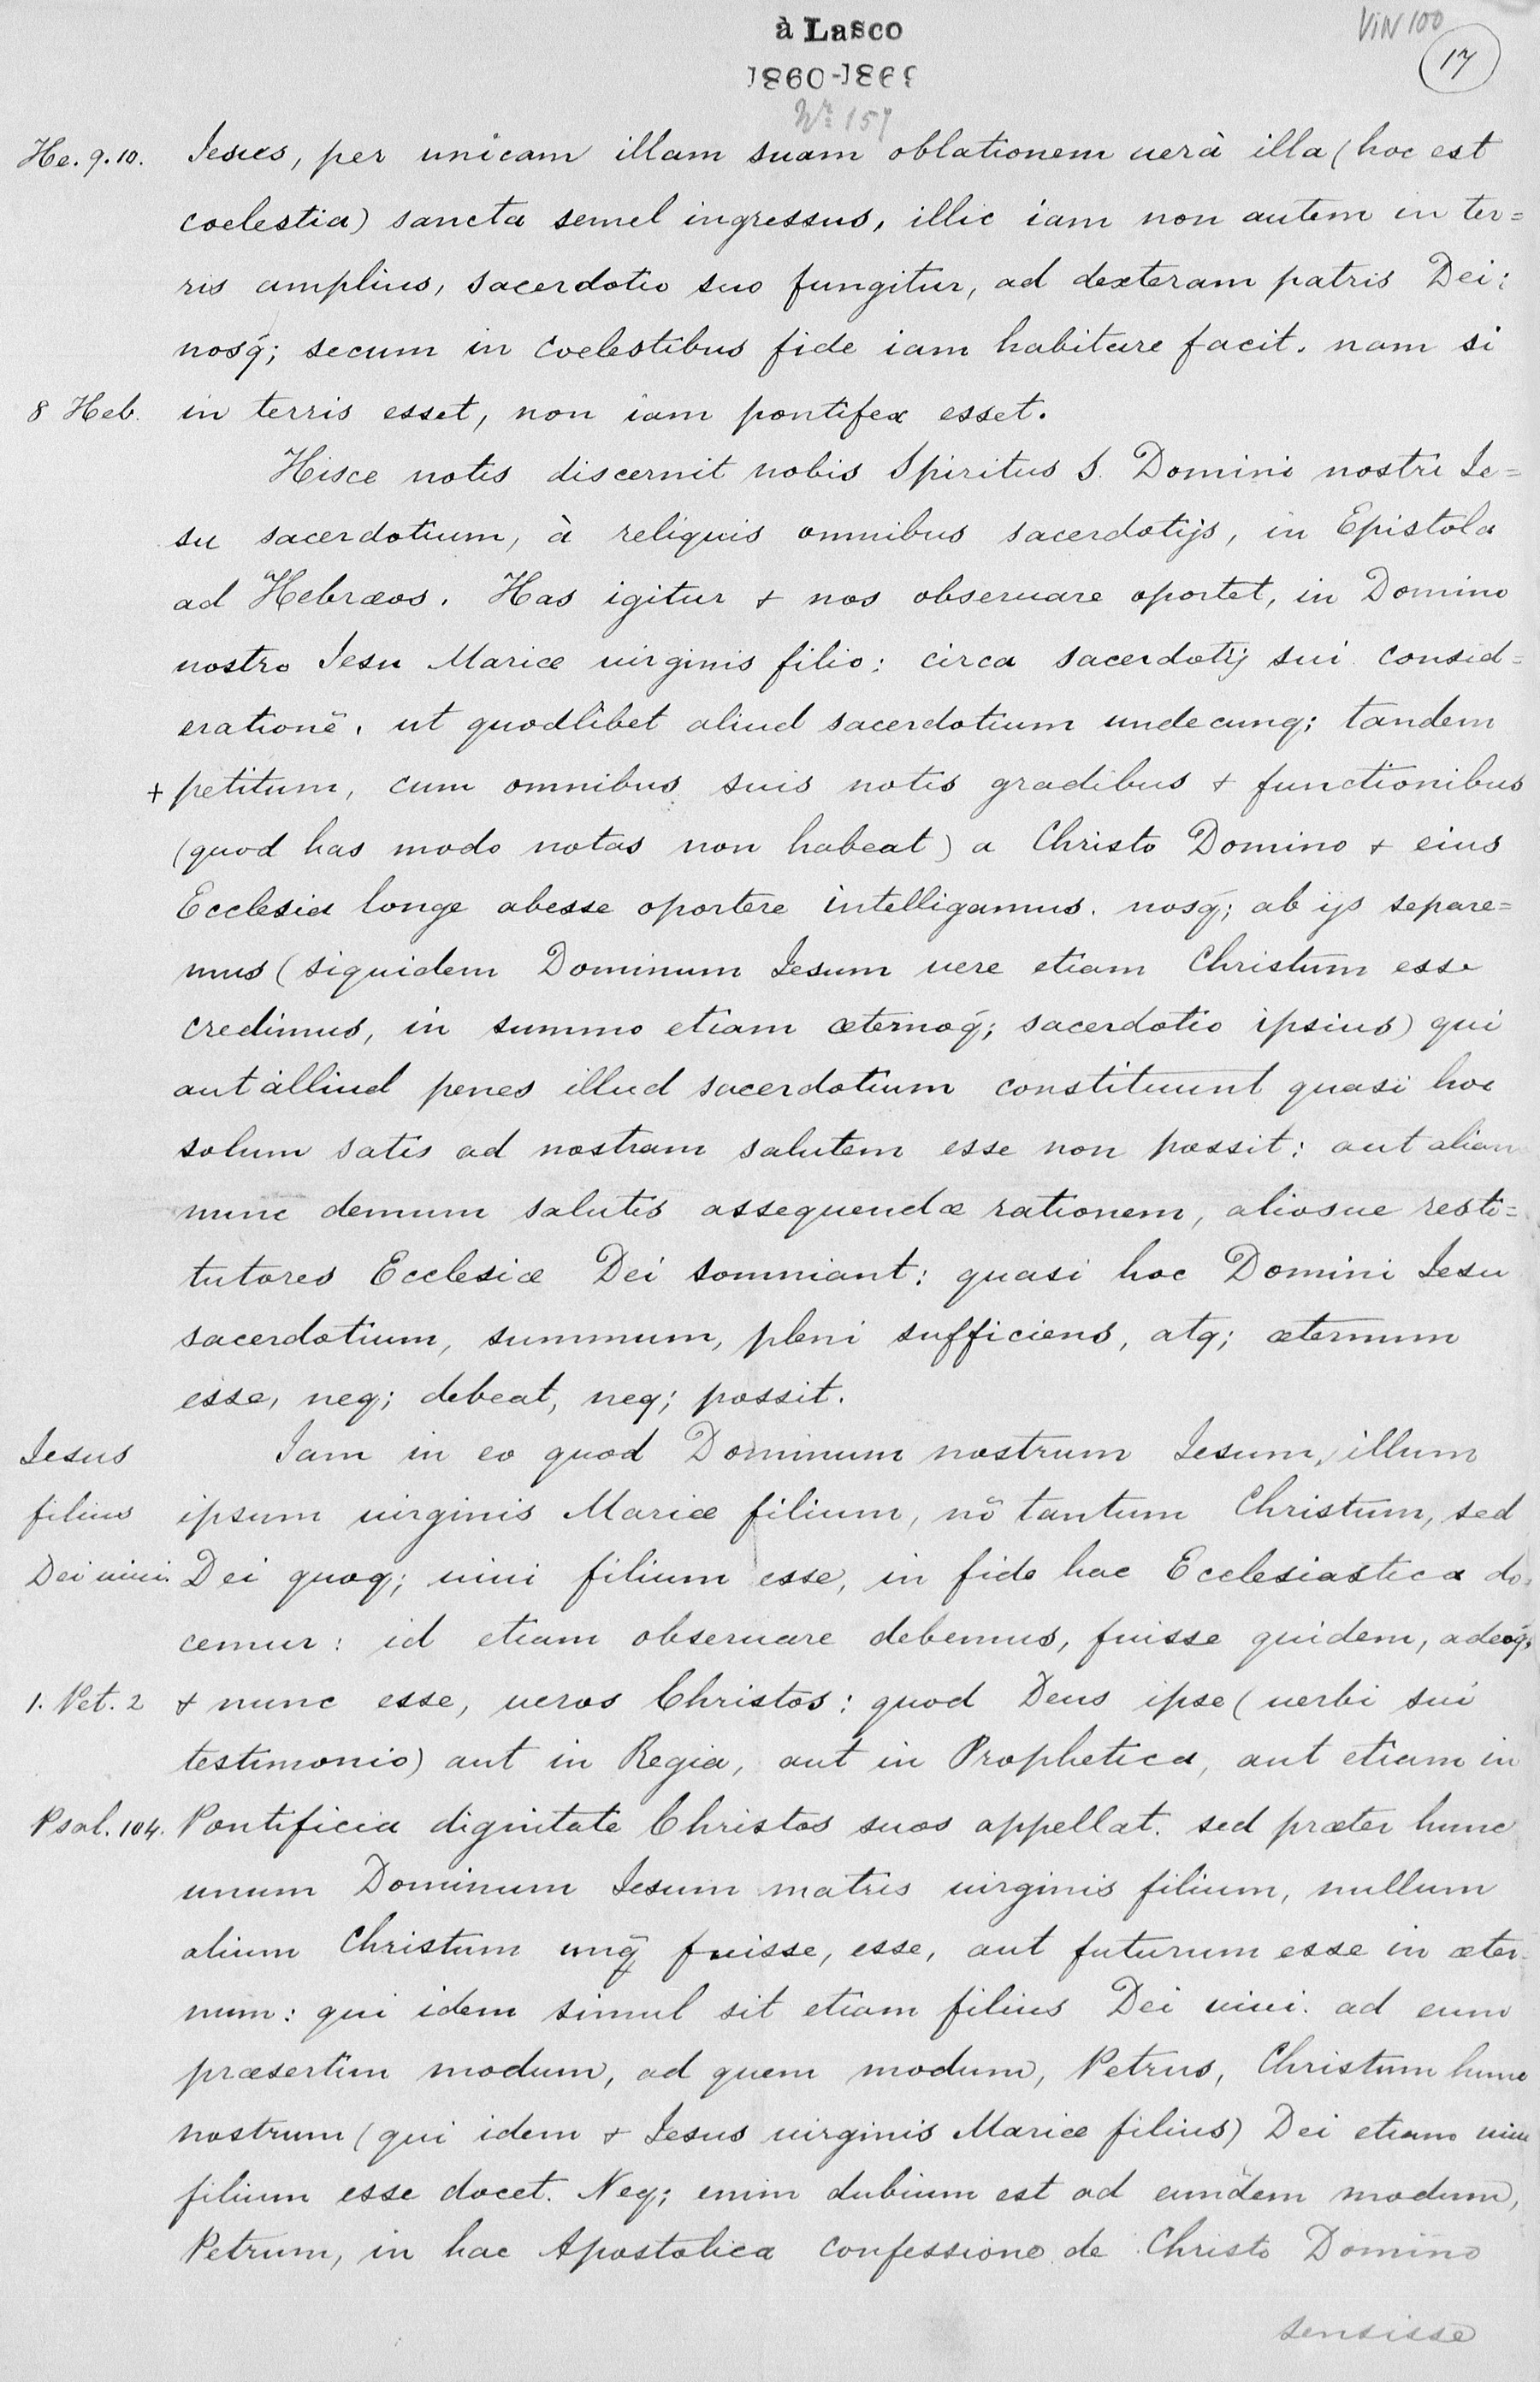 à Lasco
VIN 100
17
1860-1869
Nr. 159
He. 9.10. Iesus, per unicam illam suam oblationem uerà illa (hoc est
coelestia) sancta semel ingressus, illic iam non autem in ter=
ris amplius, sacerdotio suo fungitur, ad dexteram patris Dei:
nosq́; secum in coelestibus fide iam habitare facit. nam si
8 Heb. in terris esset, non iam pontifex esset.
Hisce notis discernit nobis Spiritus S. Domini nostri Ie=
su sacerdotium, à reliquis omnibus sacerdotijs, in Epistola
ad Hebræos. Has igitur & nos obseruare oportet, in Domino
nostro Iesu Mariæ uirginis filio: circa sacerdotij sui consid=
erationẽ. ut quodlibet aliud sacerdotium undecunq; tandem
+ petitum, cum omnibus suis notis gradibus & functionibus
(quod has modo notas non habeat) a Christo Domino & eius
Ecclesia longe abesse oportere intelligamus. nosq́; ab ijs separe=
mus (siquidem Dominum Iesum uere etiam Christum esse
credimus, in summo etiam æternoq́; sacerdotio ipsius) qui
aut alliud penes illud sacerdotium constituunt quasi hoc
solum satis ad nostram salutem esse non possit: aut aliam
nunc demum salutis assequendæ rationem, aliosue resti=
tutores Ecclesiæ Dei somniant: quasi hoc Domini Iesu
sacerdotium, summum, pleni sufficiens, atq; æternum
esse, neq; debeat, neq; possit.
Iesus Iam in eo quod Dominum nostrum Iesum, illum
filius ipsum uirginis Mariæ filium, nõ tantum Christum, sed
Dei uiui. Dei quoq; uiui filium esse, in fide hac Ecclesiastica do=
cemur: id etiam obseruare debemus, fuisse quidem, adeoq́;
1. Pet. 2 & nunc esse, ueros Christos: quod Deus ipse (uerbi sui
testimonio) aut in Regia, aut in Prophetica, aut etiam in
Psal. 104. Pontificia dignitate Christos suos appellat. sed præter hunc
unum Dominum Iesum matris uirginis filium, nullum
alium Christum unq̃ fuisse, esse, aut futurum esse in æter-
num: qui idem simul sit etiam filius Dei uiui. ad eum
præsertim modum, ad quem modum, Petrus, Christum hunc
nostrum (qui idem & Iesus uirginis Mariæ filius) Dei etiam uiui
filium esse docet. Neq; enim dubium est ad eundem modum,
Petrum, in hac Apostolica confessione de Christo Domino
sensisse